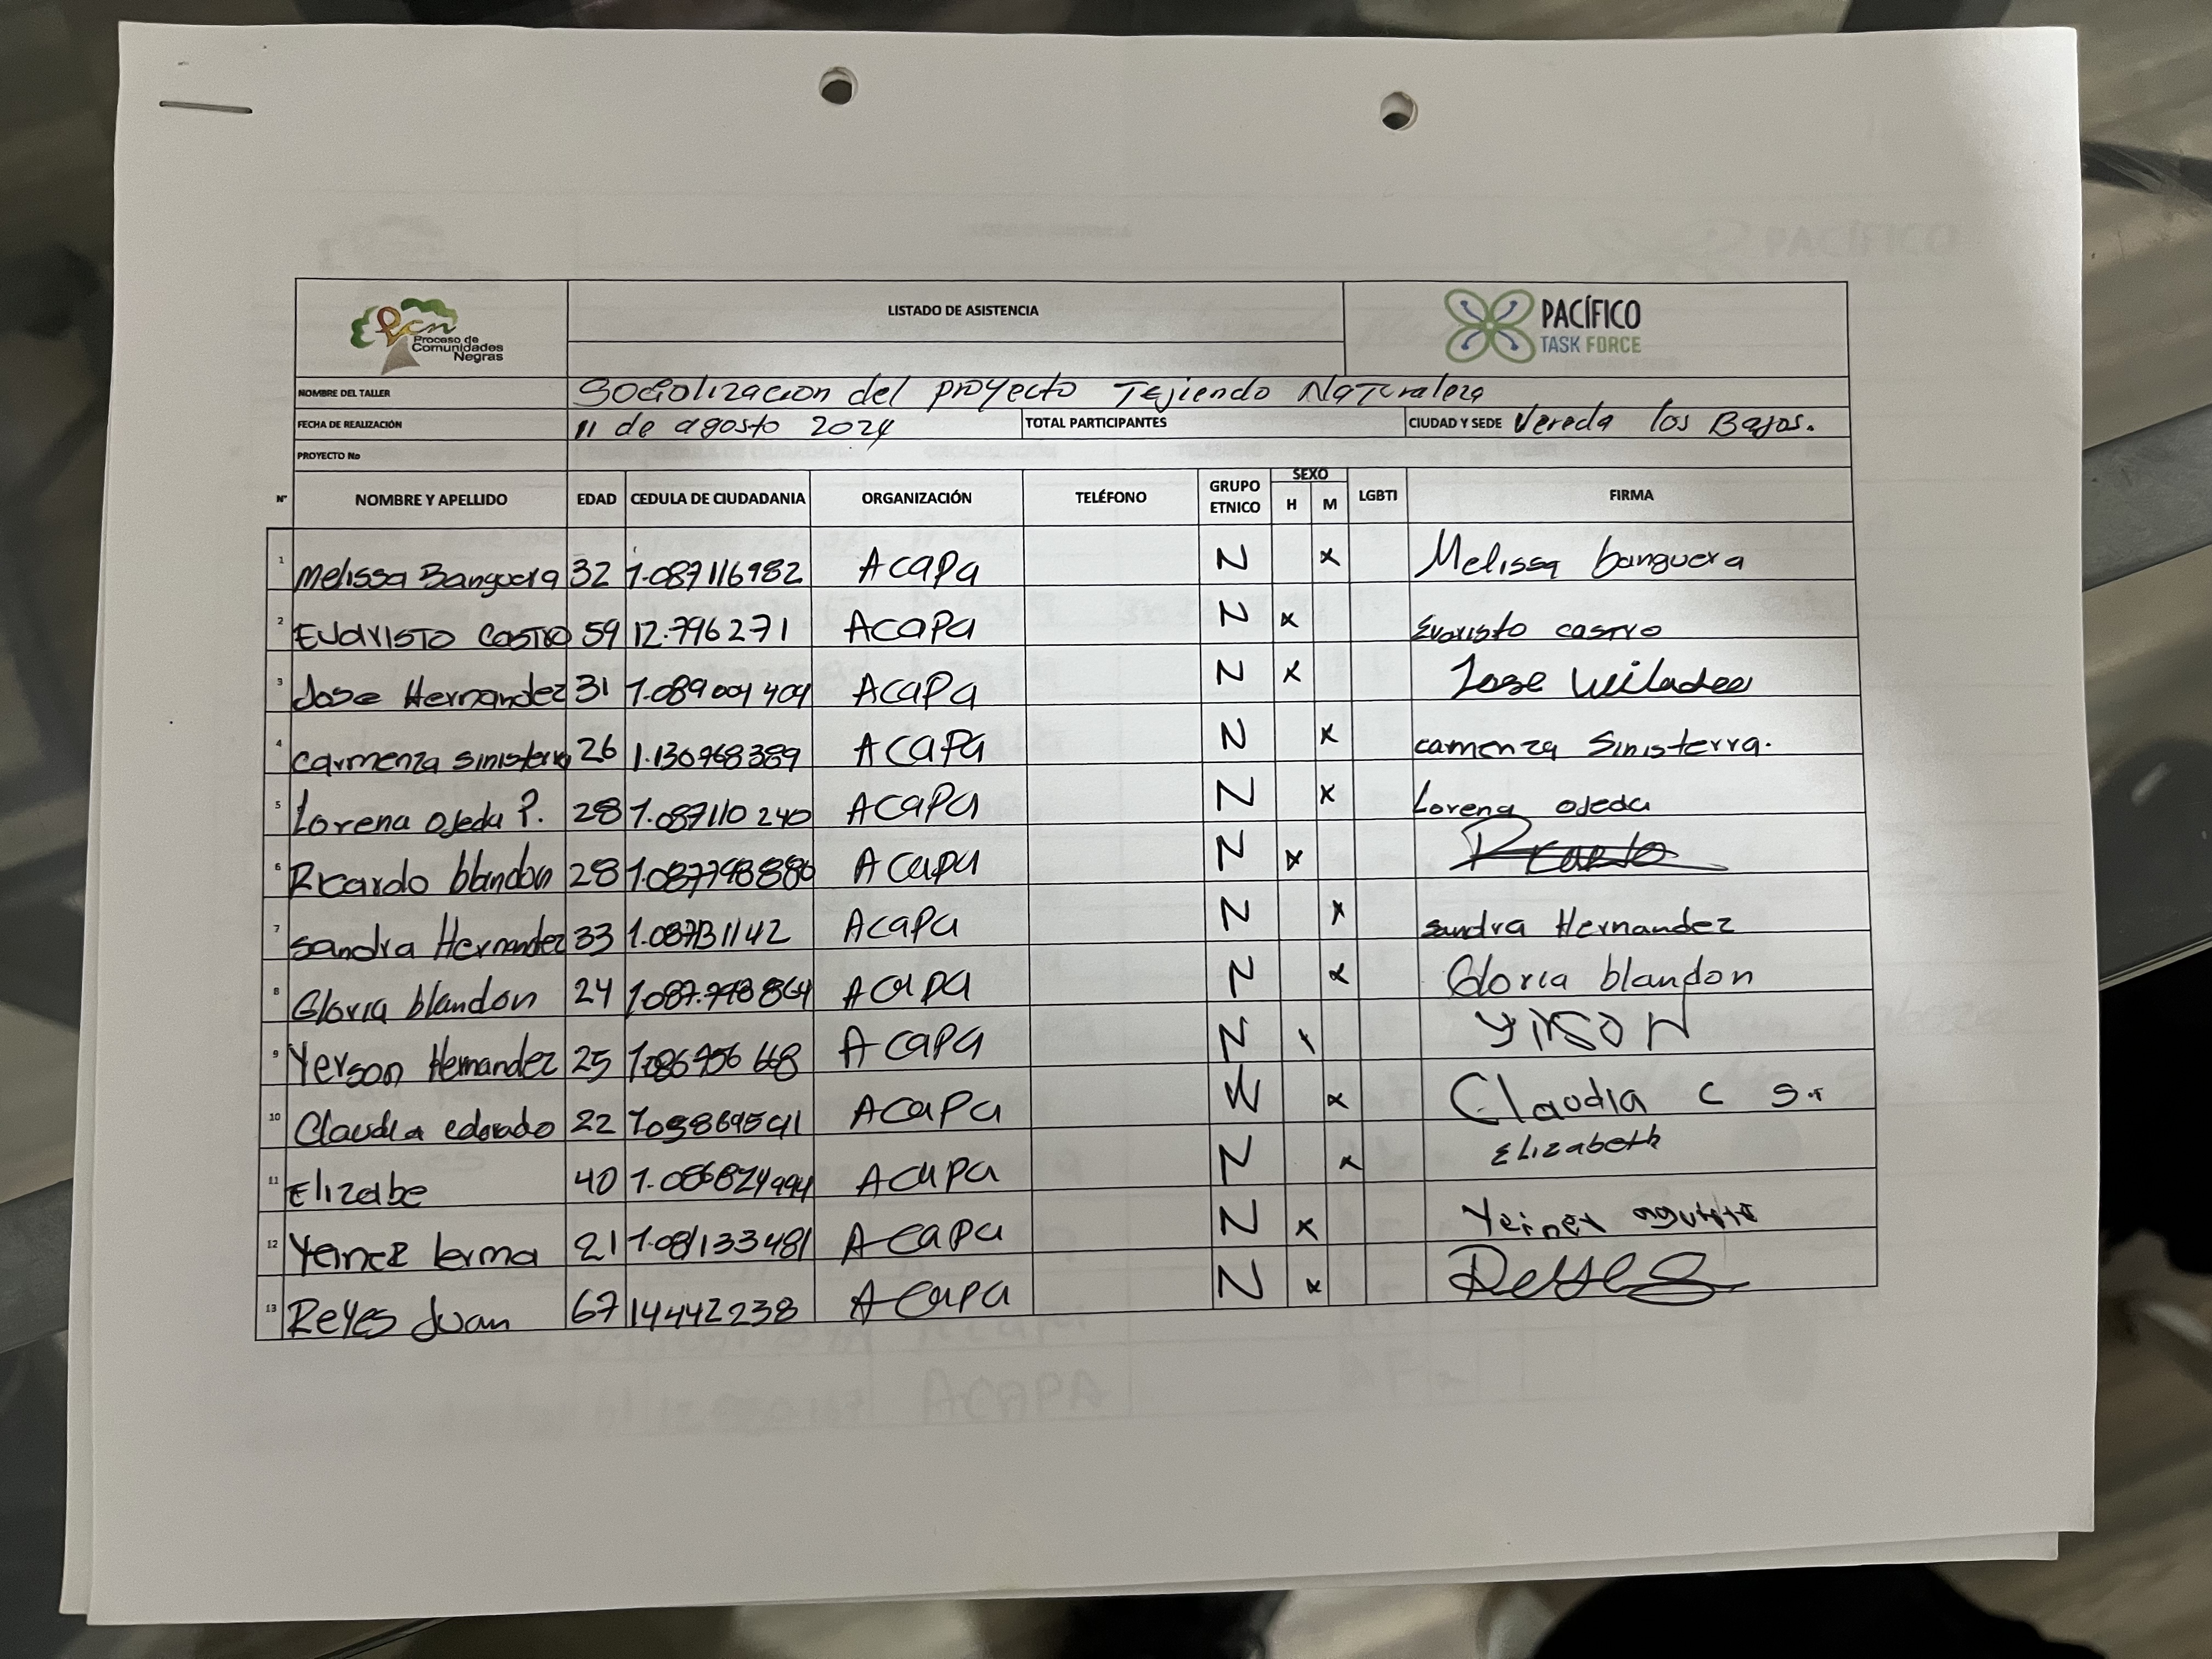 pcn
Proceso de
Comunidades
Negras
LISTADO DE ASISTENCIA
PACÍFICO
TASK FORCE
NOMBRE DEL TALLER Sociolizacion del proyecto Tejiendo Naturaleza
FECHA DE REALIZACIÓN 11 de agosto 2024 TOTAL PARTICIPANTES CIUDAD Y SEDE Vereda los Bajos.
PROYECTO No
N° NOMBRE Y APELLIDO EDAD CEDULA DE CIUDADANIA ORGANIZACIÓN TELÉFONO GRUPO ETNICO SEXO H M LGBTI FIRMA
1 Melissa Banguera 32 1.087116982 Acapa N x Melissa banguera
2 Evaristo Castro 59 12.796271 Acapa N x Evaristo castro
3 Jose Hernandez 31 1.089004404 Acapa N x Jose
4 Carmenza sinisterra 26 1.130768389 Acapa N x camenza Sinisterra.
5 Lorena Ojeda P. 28 1.087110240 Acapa N x Lorena Ojeda
6 Ricardo blandon 28 Acapa N x
7 Sandra Hernandez 33 Acapa N x sandra Hernandez
8 Gloria blandon 24 Acapa N x Gloria blandon
9 Yerson Hernandez 25 Acapa N YirsoN
10 Claudia 22 Acapa N x Claudia C S.
11 Elizabe 40 Acapa N x Elizabeth
12 lerma 21 1.081133481 Acapa N x Yeiner
13 Reyes Juan 67 14442238 Acapa N x Reyes